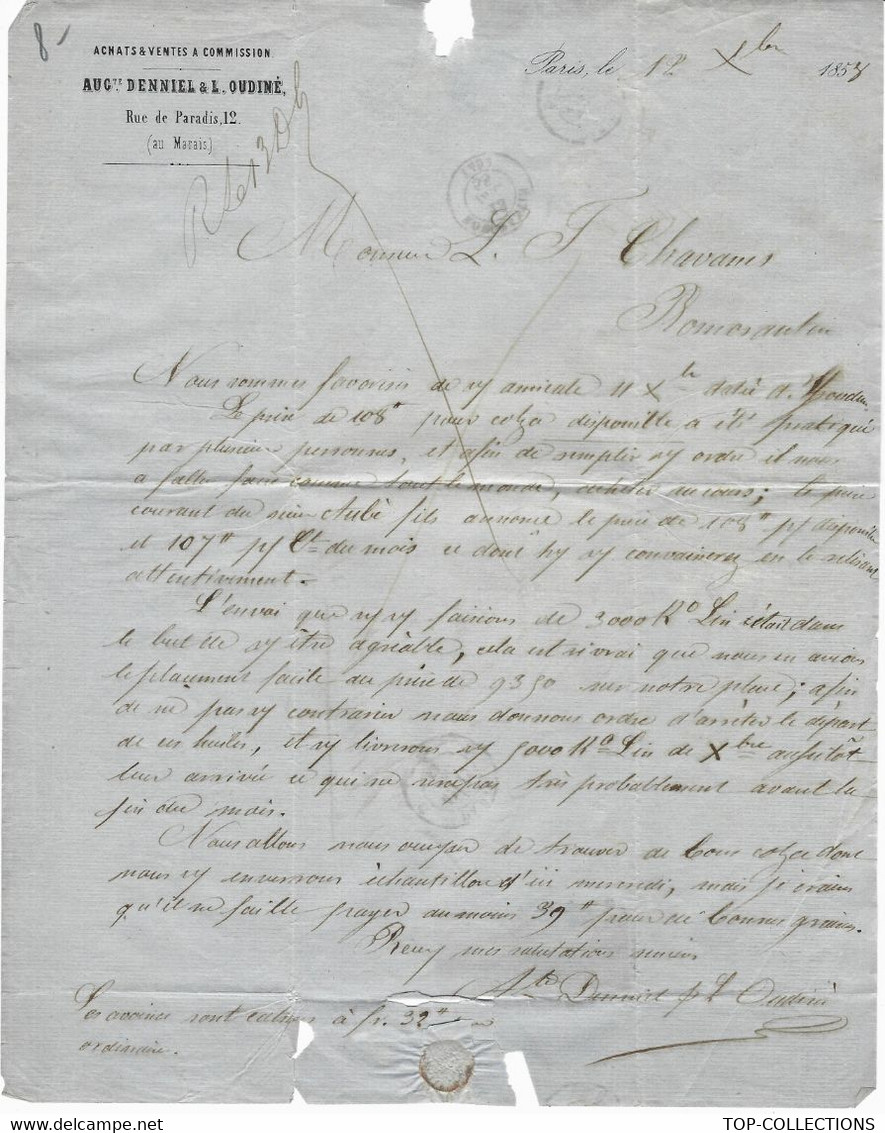 8-
ACHATS & VENTES A COMMISSION.
AUG.TE DENNIEL & L. OUDINÉ,
Rue de Paradis, 12.
(au Marais)
Paris, le 12 Xbre 1857
Monsieur L. T Chavanes
Romorantin
Nous sommes favorisés de vy amicale 11 Xbre datée d'Issoudun
Le prix de 108" pour colza disponible a été pratiqué
par plusieurs personnes, et afin de remplir vy ordre il nous
a fallu faire comme tout le monde, acheter au cours; le prix
courant du sieur Aubé fils annonce le prix de 108" p/ disponible
et 107" p/ Ct du mois ce dont vy convaincrez en le relisant
attentivement.
L'envoi que vy faisions de 3000 Ko Lin était dans
le but de vy être agréable, cela est si vrai que nous en avions
le placement facile au prix de 9350 sur notre place; afin
de ne pas vy contrarier nous donnons ordre d'arrêter le départ
de ces huiles, et vy livrerons vy 5000 Ko Lin de Xbre aussitôt
leur arrivée ce qui ne sera pas très probablement avant la
fin du mois.
Nous allons nous occuper de trouver de bons colza dont
nous vy enverrons échantillon d'ici mercredi, mais je crains
qu'il ne faille payer au moins 39" pour de bonnes graines.
Recevez mes salutations sincères
Ate Denniel p L Oudiné
Les avoines sont calmes à fr. 32"
ordinaire.
TOP-COLLECTIONS